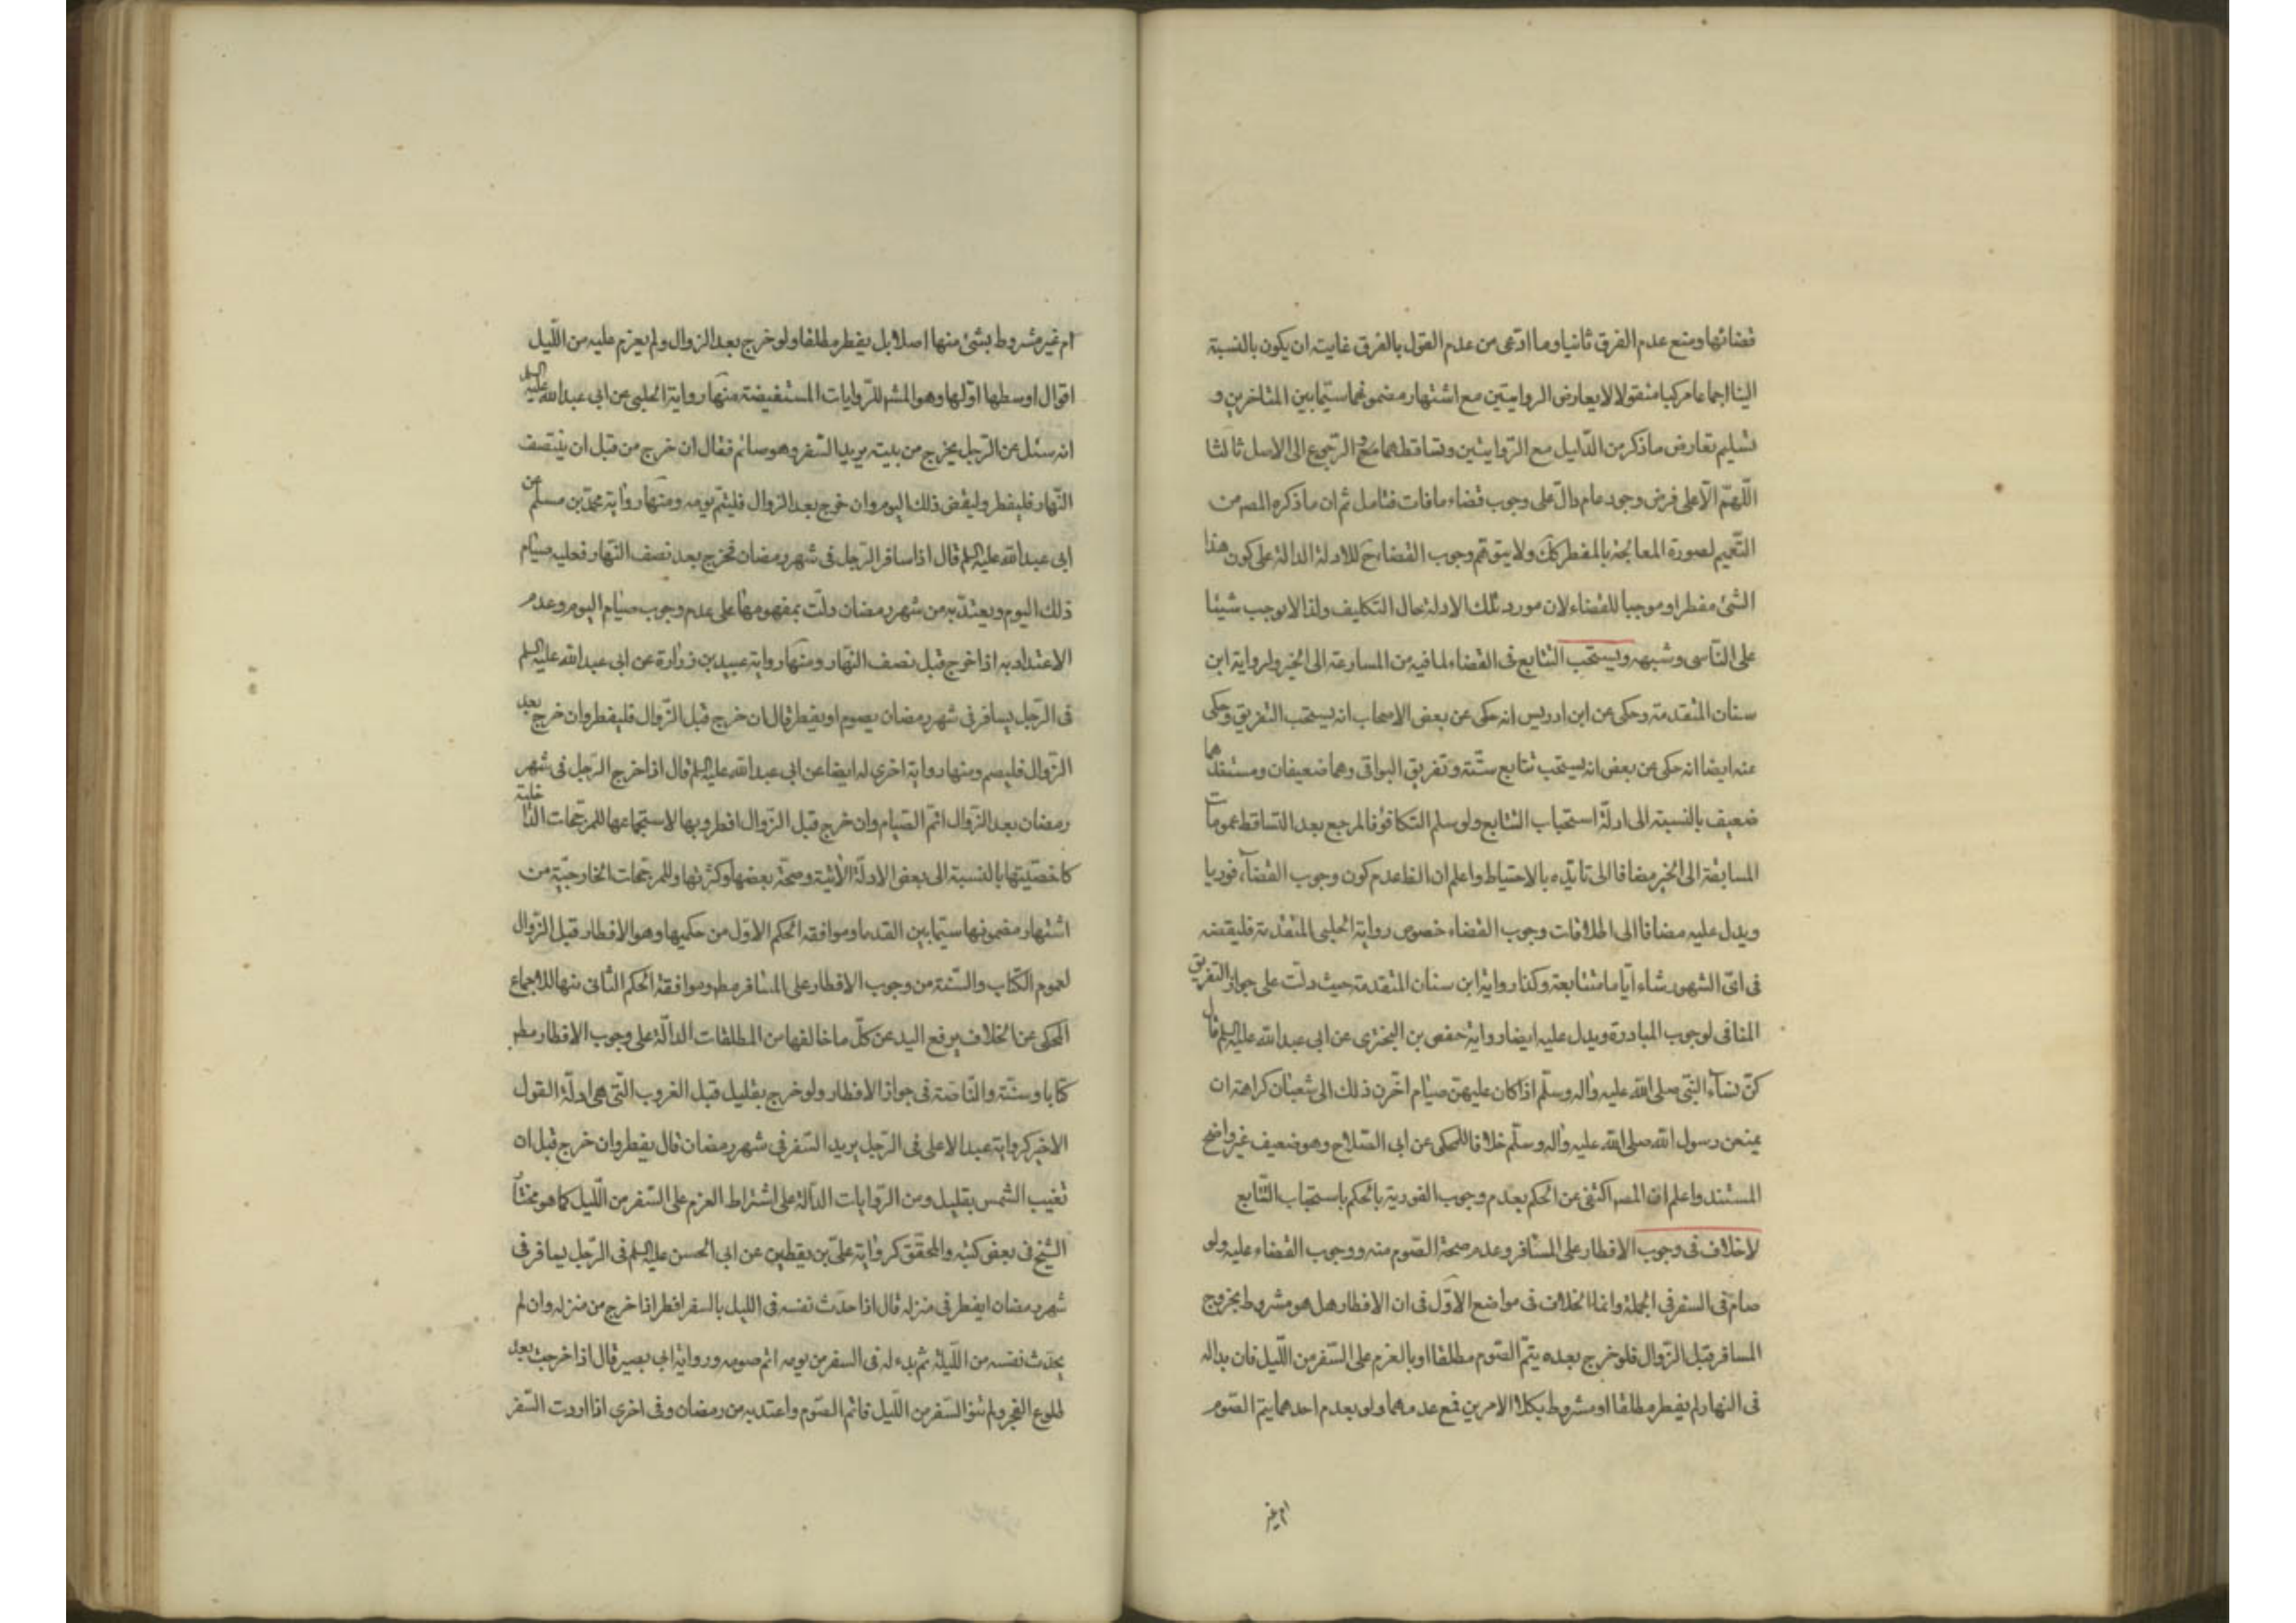 قضائها ومنع عدم الفرق ثانيا وما ادّعى من عدم القول بالفرق غايته ان يكون بالنسبة
الينا اجماعا مركبا منقولا لا يعارض الروايتين مع اشتهار مضمونهما سيّما بين المتاخرين و
تسليم تعارض ما ذكر من الدّليل مع الرّوايتين وتساقطهما مع الرّجوع الى الاصل ثالثا
اللّهمّ الّا على فرض وجود عام دالّ على وجوب قضاء ما فات فتامل ثم ان ما ذكره المصم من
التّعميم لصورة المعالجة بالمفطر كك ولا يتوهّم وجوب القضاء ح للادلة الدالة على كون هذا
الشئ مفطرا وموجبا للقضاء لان مورد تلك الادلة حال التكليف ولذا لا يوجب شيئا
على النّاسى وشبهه ويستحب التتابع فى القضاء لما فيه من المسارعة الى الخير ولرواية ابن
سنان المتقدمة وحكى عن ابن ادريس انه حكى عن بعض الاصحاب انه يستحب التفريق وحكى
عنه ايضا انه حكى عن بعض انه يستحب تتابع ستّة وتفريق البواقى وهما ضعيفان ومستندهما
ضعيف بالنسبة الى ادلّة استحباب التتابع ولو سلم التكافؤ فالمرجع بعد التساقط عمومات
المسابقة الى الخير مضافا الى تايّده بالاحتياط واعلم ان الظ عدم كون وجوب القضآء فوريا
ويدل عليه مضافا الى اطلاقات وجوب القضاء خصوص رواية الحلبى المتقدمة فليقضه
فى اىّ الشهور شاء ايّاما متتابعة وكذا رواية ابن سنان المتقدمة حيث دلّت على جواز التفريق
المنافى لوجوب المبادرة ويدل عليه ايضا رواية حفص بن البخترى عن ابى عبد الله عليه السلم قال
كنّ نسآء النبّى صلى الله عليه واله وسلّم اذا كان عليهنّ صيام اخّرن ذلك الى شعبان كراهة ان
يمنعن رسول الله صلى الله عليه واله وسلّم خلافا للمحكى عن ابى الصّلاح وهو ضعيف غير واضح
المستند واعلم انّ المصم اكتفى عن الحكم بعدم وجوب الفورية بالحكم باستحباب التّتابع
لا خلاف فى وجوب الافطار على المسافر وعدم صحة الصّوم منه ووجوب القضاء عليه ولو
صام فى السفر فى الجملة وانما الخلاف فى مواضع الاوّل فى ان الافطار هل هو مشروط بخروج
المسافر قبل الزّوال فلو خرج بعده يتمّ الصّوم مطلقا او بالعزم على السّفر من اللّيل فان بدا له
فى النهار لم يفطر مطلقا او مشروط بكلا الامرين فمع عدمهما ولو بعدم احدهما يتمّ الصّوم
ام غير
ام غير مشروط بشئ منها اصلا بل يفطر مطلقا ولو خرج بعد الزوال ولم يعزم عليه من اللّيل
اقوال اوسطها اوّلها وهو المشهر للرّوايات المستفيضة منها رواية الحلبى عن ابى عبد الله عليه السلم
انه سئل عن الرّجل يخرج من بيته يريد السّفر وهو صائم فقال ان خرج من قبل ان ينتصف
النّهار فليفطر وليقض ذلك اليوم وان خرج بعد الزوال فليتمّ يومه ومنها رواية محمّد بن مسلم عن
ابى عبد الله عليه السلم قال اذا سافر الرّجل فى شهر رمضان فخرج بعد نصف النّهار فعليه صيام
ذلك اليوم ويعتدّ به من شهر رمضان دلّت بمفهومها على عدم وجوب صيام اليوم وعدم
الاعتداد به اذا خرج قبل نصف النهار ومنها رواية عبيد بن زرارة عن ابى عبد الله عليه السلم
فى الرّجل يسافر فى شهر رمضان يصوم او يفطر قال ان خرج قبل الزّوال فليفطر وان خرج بعد
الزّوال فليصم ومنها رواية اخرى له ايضا عن ابى عبد الله عليه السلم قال اذا خرج الرّجل فى شهر
رمضان بعد الزّوال اتمّ الصّيام وان خرج قبل الزّوال افطر وبها لاستجماعها للمرجّحات الدّاخلية
كاخصّيتها بالنسبة الى بعض الادلّة الاتية وصحّة بعضها وكثرتها وللمرجّحات الخارجيّة من
اشتهار مضمونها سيّما بين القدما وموافقه الحكم الاوّل من حكميها وهو الافطار قبل الزّوال
لعموم الكتاب والسّنة من وجوب الافطار على المسافر مطم وموافقة الحكم الثانى منها للاجماع
المحكى عن الخلاف يرفع اليد عن كلّ ما خالفها من المطلقات الدالّة على وجوب الافطار مطم
كتابا وسنّة والنّاصّة فى جواز الافطار ولو خرج بقليل قبل الغروب الّتى هى ادلّة القول
الاخير كرواية عبد الاعلى فى الرّجل يريد السّفر فى شهر رمضان قال يفطر وان خرج قبل ان
تغيب الشّمس بقليل ومن الرّوايات الدّالة على اشتراط العزم على السّفر من اللّيل كما هو مختار
الشّيخ فى بعض كتبه والمحقّق كرواية علىّ بن يقطين عن ابى الحسن عليه السلم فى الرّجل يسافر فى
شهر رمضان ايفطر فى منزله قال اذا حدّث نفسه فى الليل بالسفر افطر اذا خرج من منزله وان لم
يحدّث نفسه من اللّيلة ثم بدء له فى السفر من يومه اتم صومه ورواية ابى بصير قال اذا خرجت بعد
طلوع الفجر ولم تنو السّفر من اللّيل فاتم الصّوم واعتد به من رمضان وفى اخرى اذا اردت السّفر